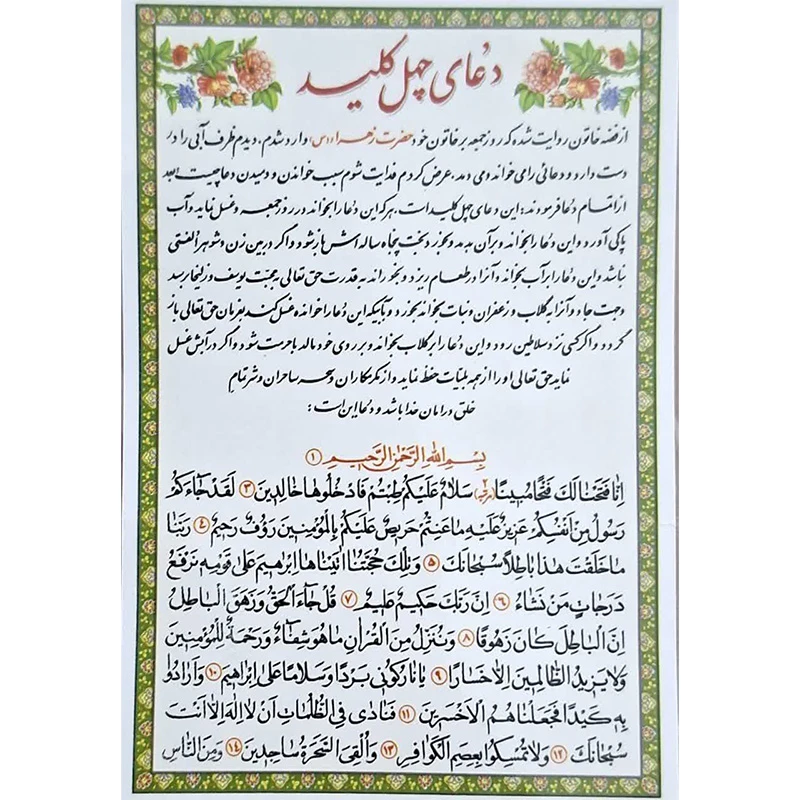 دعای چهل کلید
از فضه خاتون روایت شده که روز جمعه بر خاتون خود حضرت زهرا (س) وارد شدم، دیدم ظرف آبی را در
دست دارد و دعائی را می خواند و می دمد، عرض کردم فدایت شوم سبب خواندن و دمیدن دعا چیست بعد
از اتمام دعا فرمودند: این دعای چهل کلید است، هر که این دعا را بخواند در روز جمعه و غسل نماید و آب
پاکی آورد و این دعا را بخواند و بر آن بدمد و بخورد بخت پنجاه ساله اش باز شود و اگر در بین زن و شوهر الفتی
نباشد و این دعا را بر آب بخواند و آنرا در طعام ریزد و بخوراند به قدرت حق تعالی به محبت یوسف و زلیخا برسد
و جهت جادو آنرا به گلاب و زعفران و نبات بخواند بخورد و با آبیکه این دعا را خوانده غسل کند بفرمان حق تعالی باز
گردد و اگر کسی نزد سلاطین رود و این دعا را بر گلاب بخواند و بر روی خود مالد با حرمت شود و اگر در آبش غسل
نماید حق تعالی او را از همه بلیّات حفظ نماید و از مکر مکاران و سحر ساحران و شر تمام
خلق در امان خدا باشد و دعا این است:
بِسْمِ اللهِ الرَّحْمٰنِ الرَّحيمِ ۱
اِنّا فَتَحْنا لَكَ فَتْحًا مُبينًا (۲ مرتبه) سَلامٌ عَلَيْكُمْ طِبْتُمْ فَادْخُلُوها خالِدينَ ۳ لَقَدْ جاءَكُمْ
رَسُولٌ مِنْ اَنْفُسِكُمْ عَزيزٌ عَلَيْهِ ما عَنِتُّمْ حَريصٌ عَلَيْكُمْ بِالْمُؤْمِنينَ رَؤُفٌ رَحيمٌ ۴ رَبَّنا
ما خَلَقْتَ هٰذا باطِلاً سُبْحانَكَ ۵ وَ تِلْكَ حُجَّتُنا اتَيْناها اِبْرهيمَ عَلى قَوْمِهِ نَرْفَعُ
دَرَجاتٍ مَنْ نَشاءُ ۶ اِنَّ رَبَّكَ حَكيمٌ عَليمٌ ۷ قُلْ جاءَ الْحَقُّ وَ زَهَقَ الْباطِلُ
اِنَّ الْباطِلَ كانَ زَهُوقًا ۸ وَ نُنَزِّلُ مِنَ الْقُرْانِ ما هُوَ شِفاءٌ وَ رَحْمَةٌ لِلْمُؤْمِنينَ
وَلا يَزيدُ الظّالِمينَ اِلاّ خَسارًا ۹ يا نارُ كُوني بَرْدًا وَ سَلامًا عَلى اِبْراهيمَ ۱۰ وَ اَرادُوا
بِهِ كَيْدًا فَجَعَلْناهُمُ الْاَخْسَرينَ ۱۱ فَنادى فِى الظُّلُماتِ اَنْ لا اِلٰهَ اِلاّ اَنْتَ
سُبْحانَكَ ۱۲ وَلا تُمْسِكُوا بِعِصَمِ الْكَوافِرِ ۱۳ وَ اُلْقِىَ السَّحَرَةُ ساجِدينَ ۱۴ وَ مِنَ النّاسِ